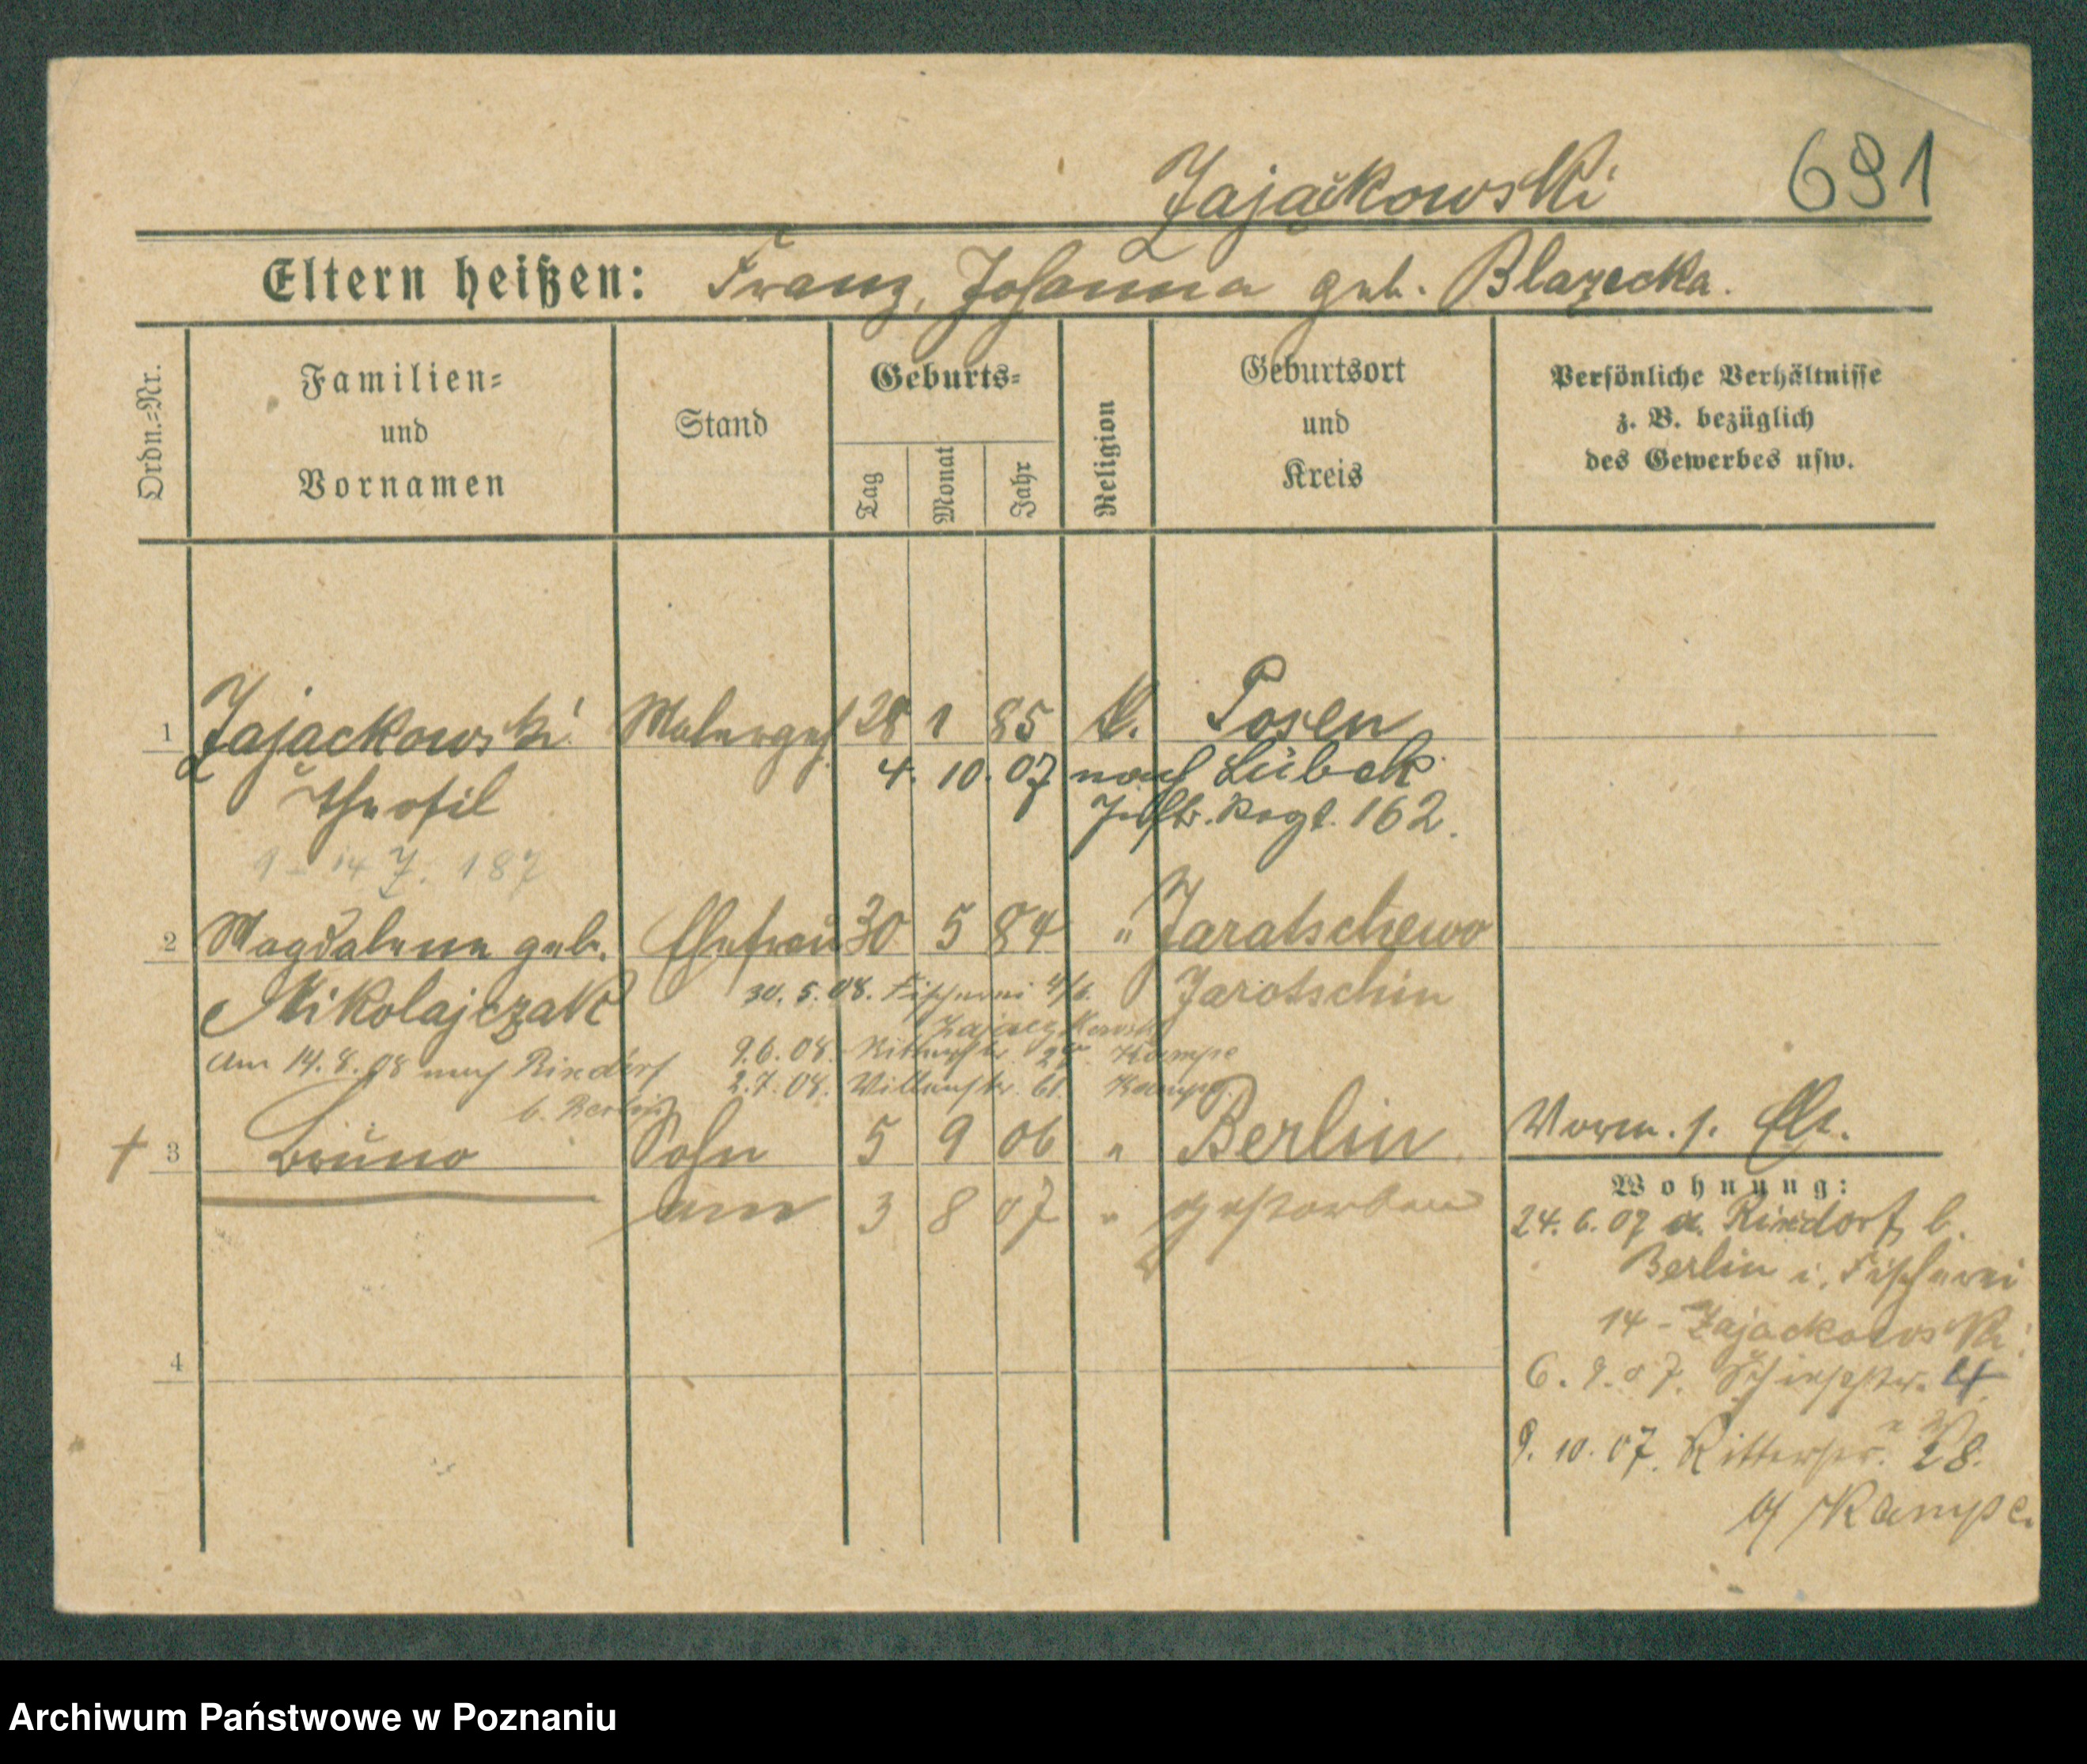 Zająckowski 691
Eltern heißen: Franz, Johanna geb. Blazecka.
Ordn.=Nr.
Familien=
und
Vornamen
Stand
Geburts=
Tag
Monat
Jahr
Religion
Geburtsort
und
Kreis
Persönliche Verhältnisse
z. B. bezüglich
des Gewerbes usw.
1 Zajackowski Malergeh. 28 1 85 k. Posen
4. 10. 07 nach Lübek
Theofil Inftr. Regt. 162.
9 - 14 7. 187
2 Magdalena geb. Ehefrau 30 5 84 " Jaratschewo
Mikolajczak 30. 5. 08. Fischerei Jarotschin
Zajaczkowski
9.6.08. Ritterstr. Kampe
Am 14. 8. 08 nach Rixdorf
2.7.08. 61 Kampe
b. Berlin
† 3 Bruno Sohn 5 9 06 " Berlin
am 3 8 07 " gestorben
Vorm. s. Elt.
Wohnung:
24. 6. 07 a. Rixdorf b.
Berlin i. Fischerei
14 - Zajackowski
6. 9. 07. 4.
9. 10. 07. Ritterstr. 28.
b/ Kampe.
4
Archiwum Państwowe w Poznaniu